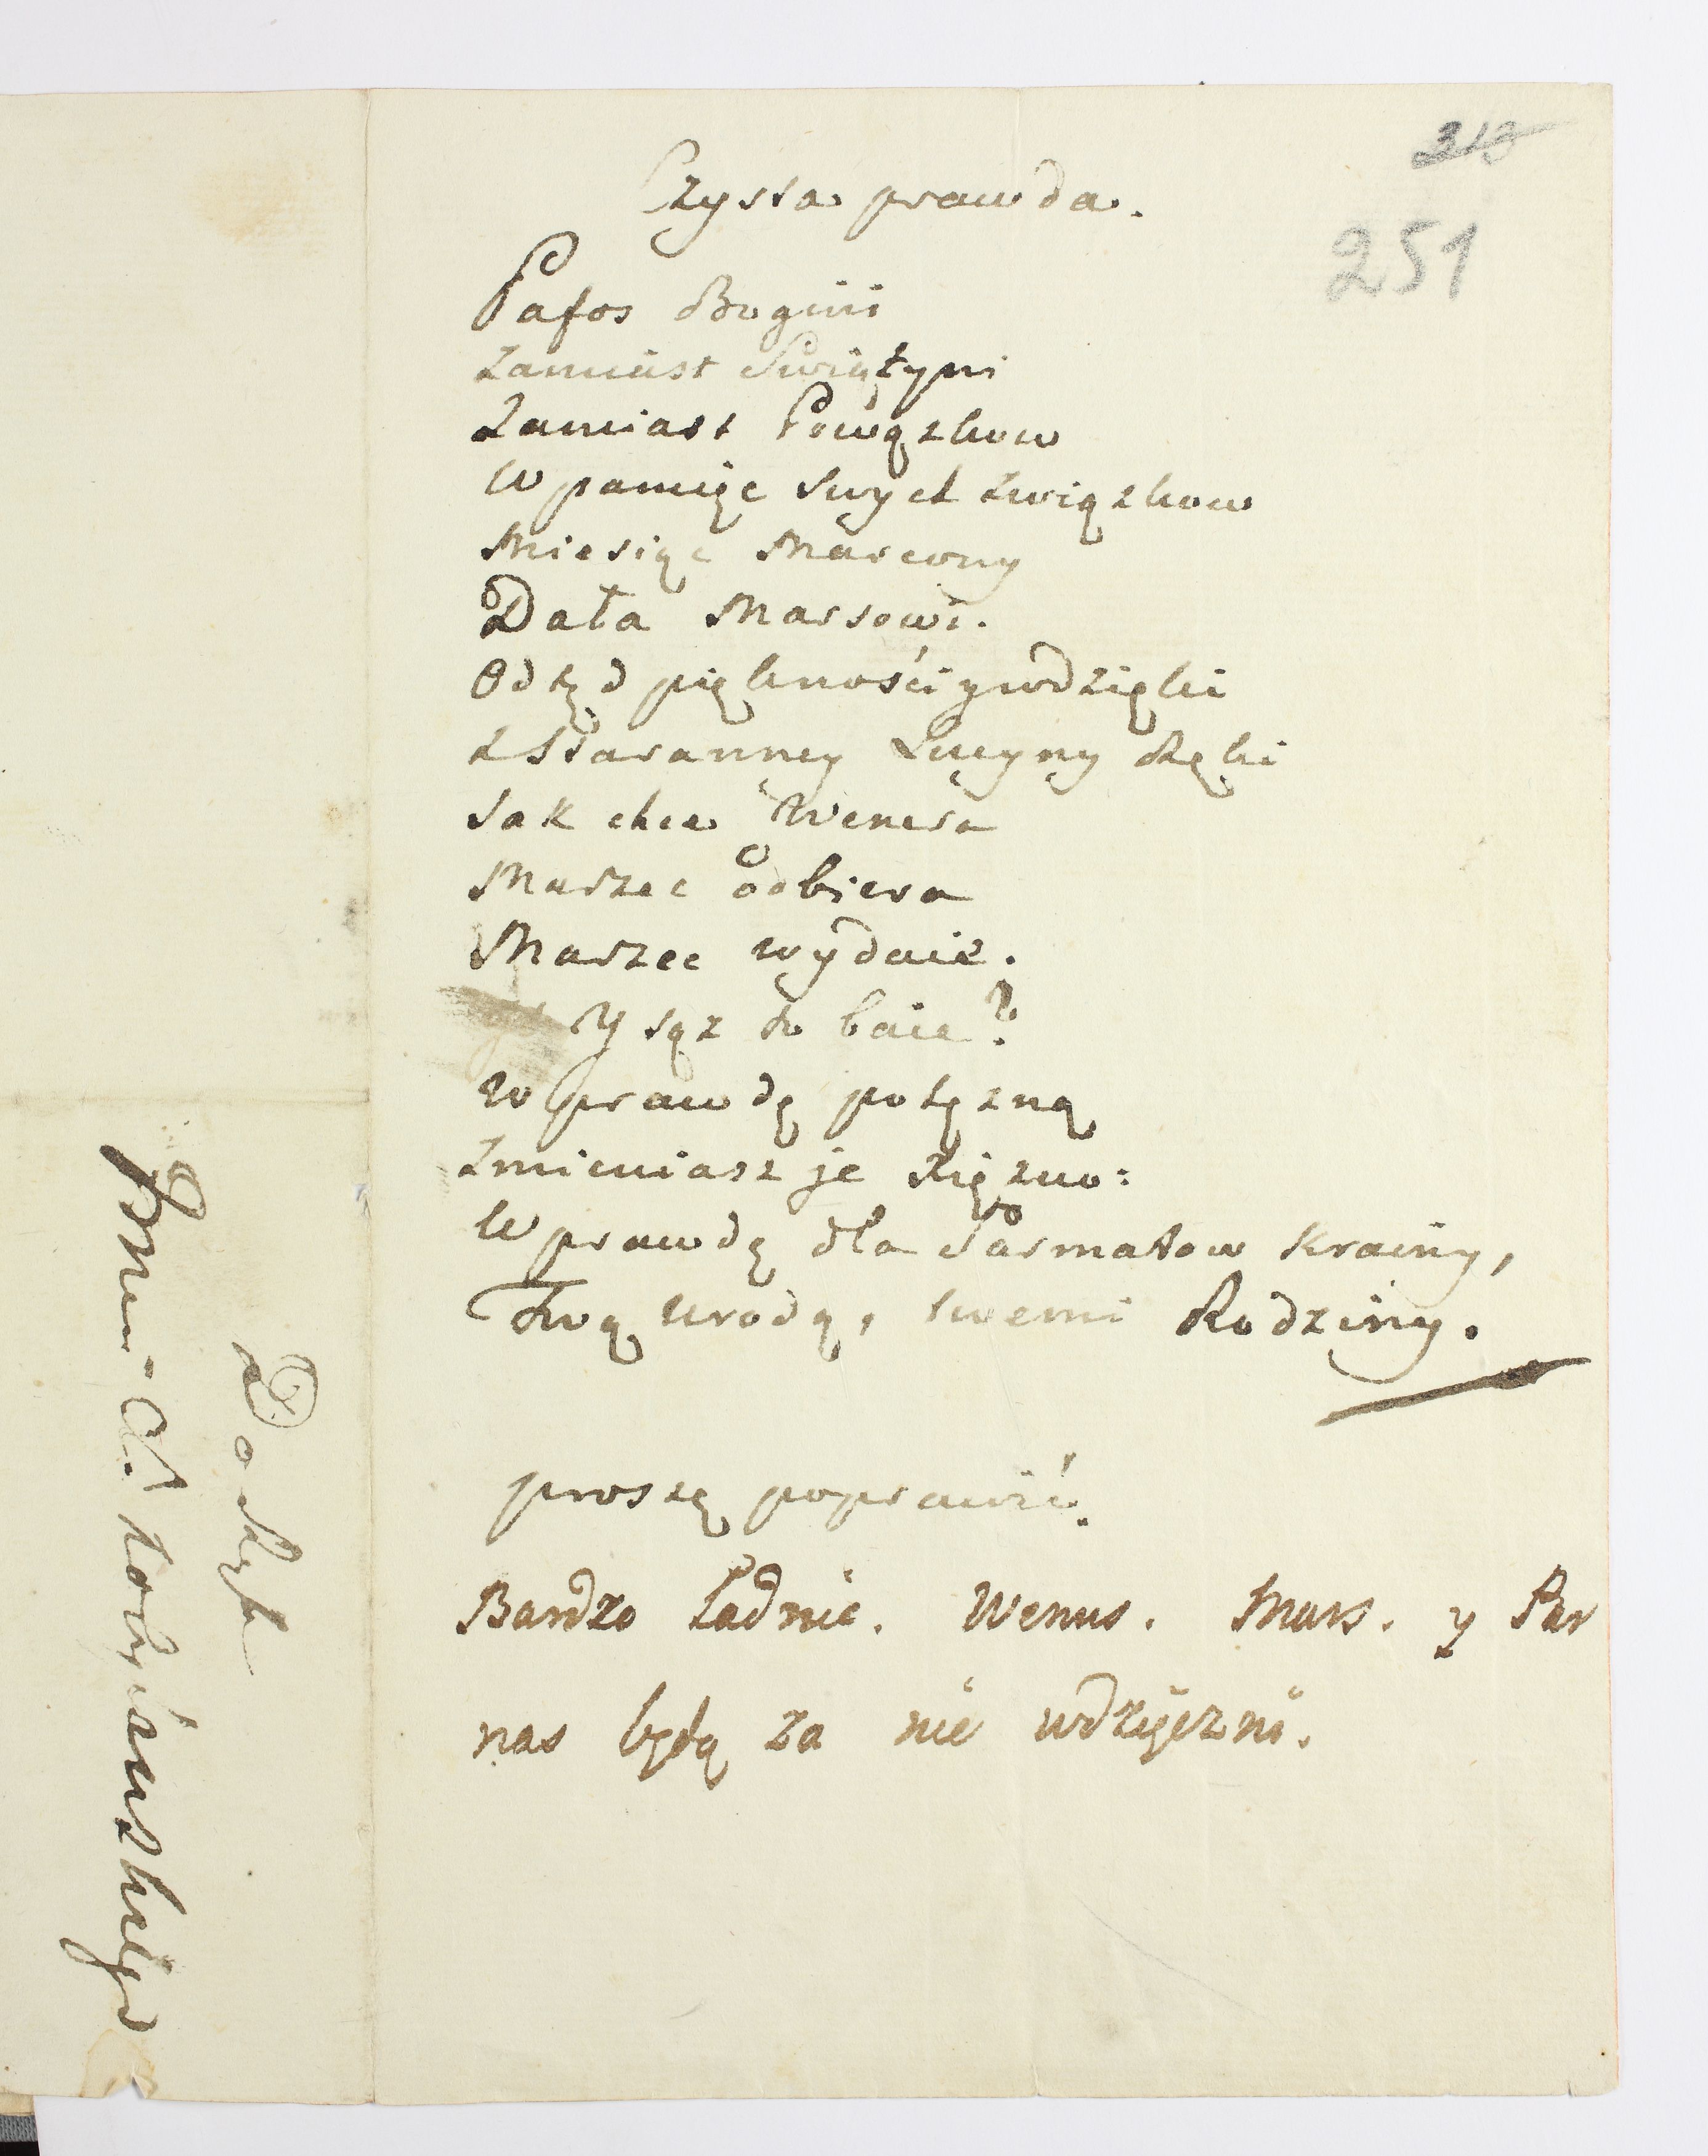 ~~313~~
251
Czysta prawda.
Pafos Bogini
Zamiast Swiątyni
Zamiast Powązkow
W pamięc swych związkow
Miesiąc Marcowy
Dała Marsowi.
Odtąd piękności y wdzięki
z Staranney Lucyny Ręki
Jak chce Wenera
Marzec odbiera
Marzec wydaie.
Y sąż to baie?
W prawdę potężną
Zmieniasz je Xiężno:
W prawdę dla Sarmatow krainy,
Twą urodą, twemi Rodziny.
proszę poprawić.
Bardzo Ładnie. Wenus. Mars. y Par
nas będą za nie wdzięczni.
Do Rąk